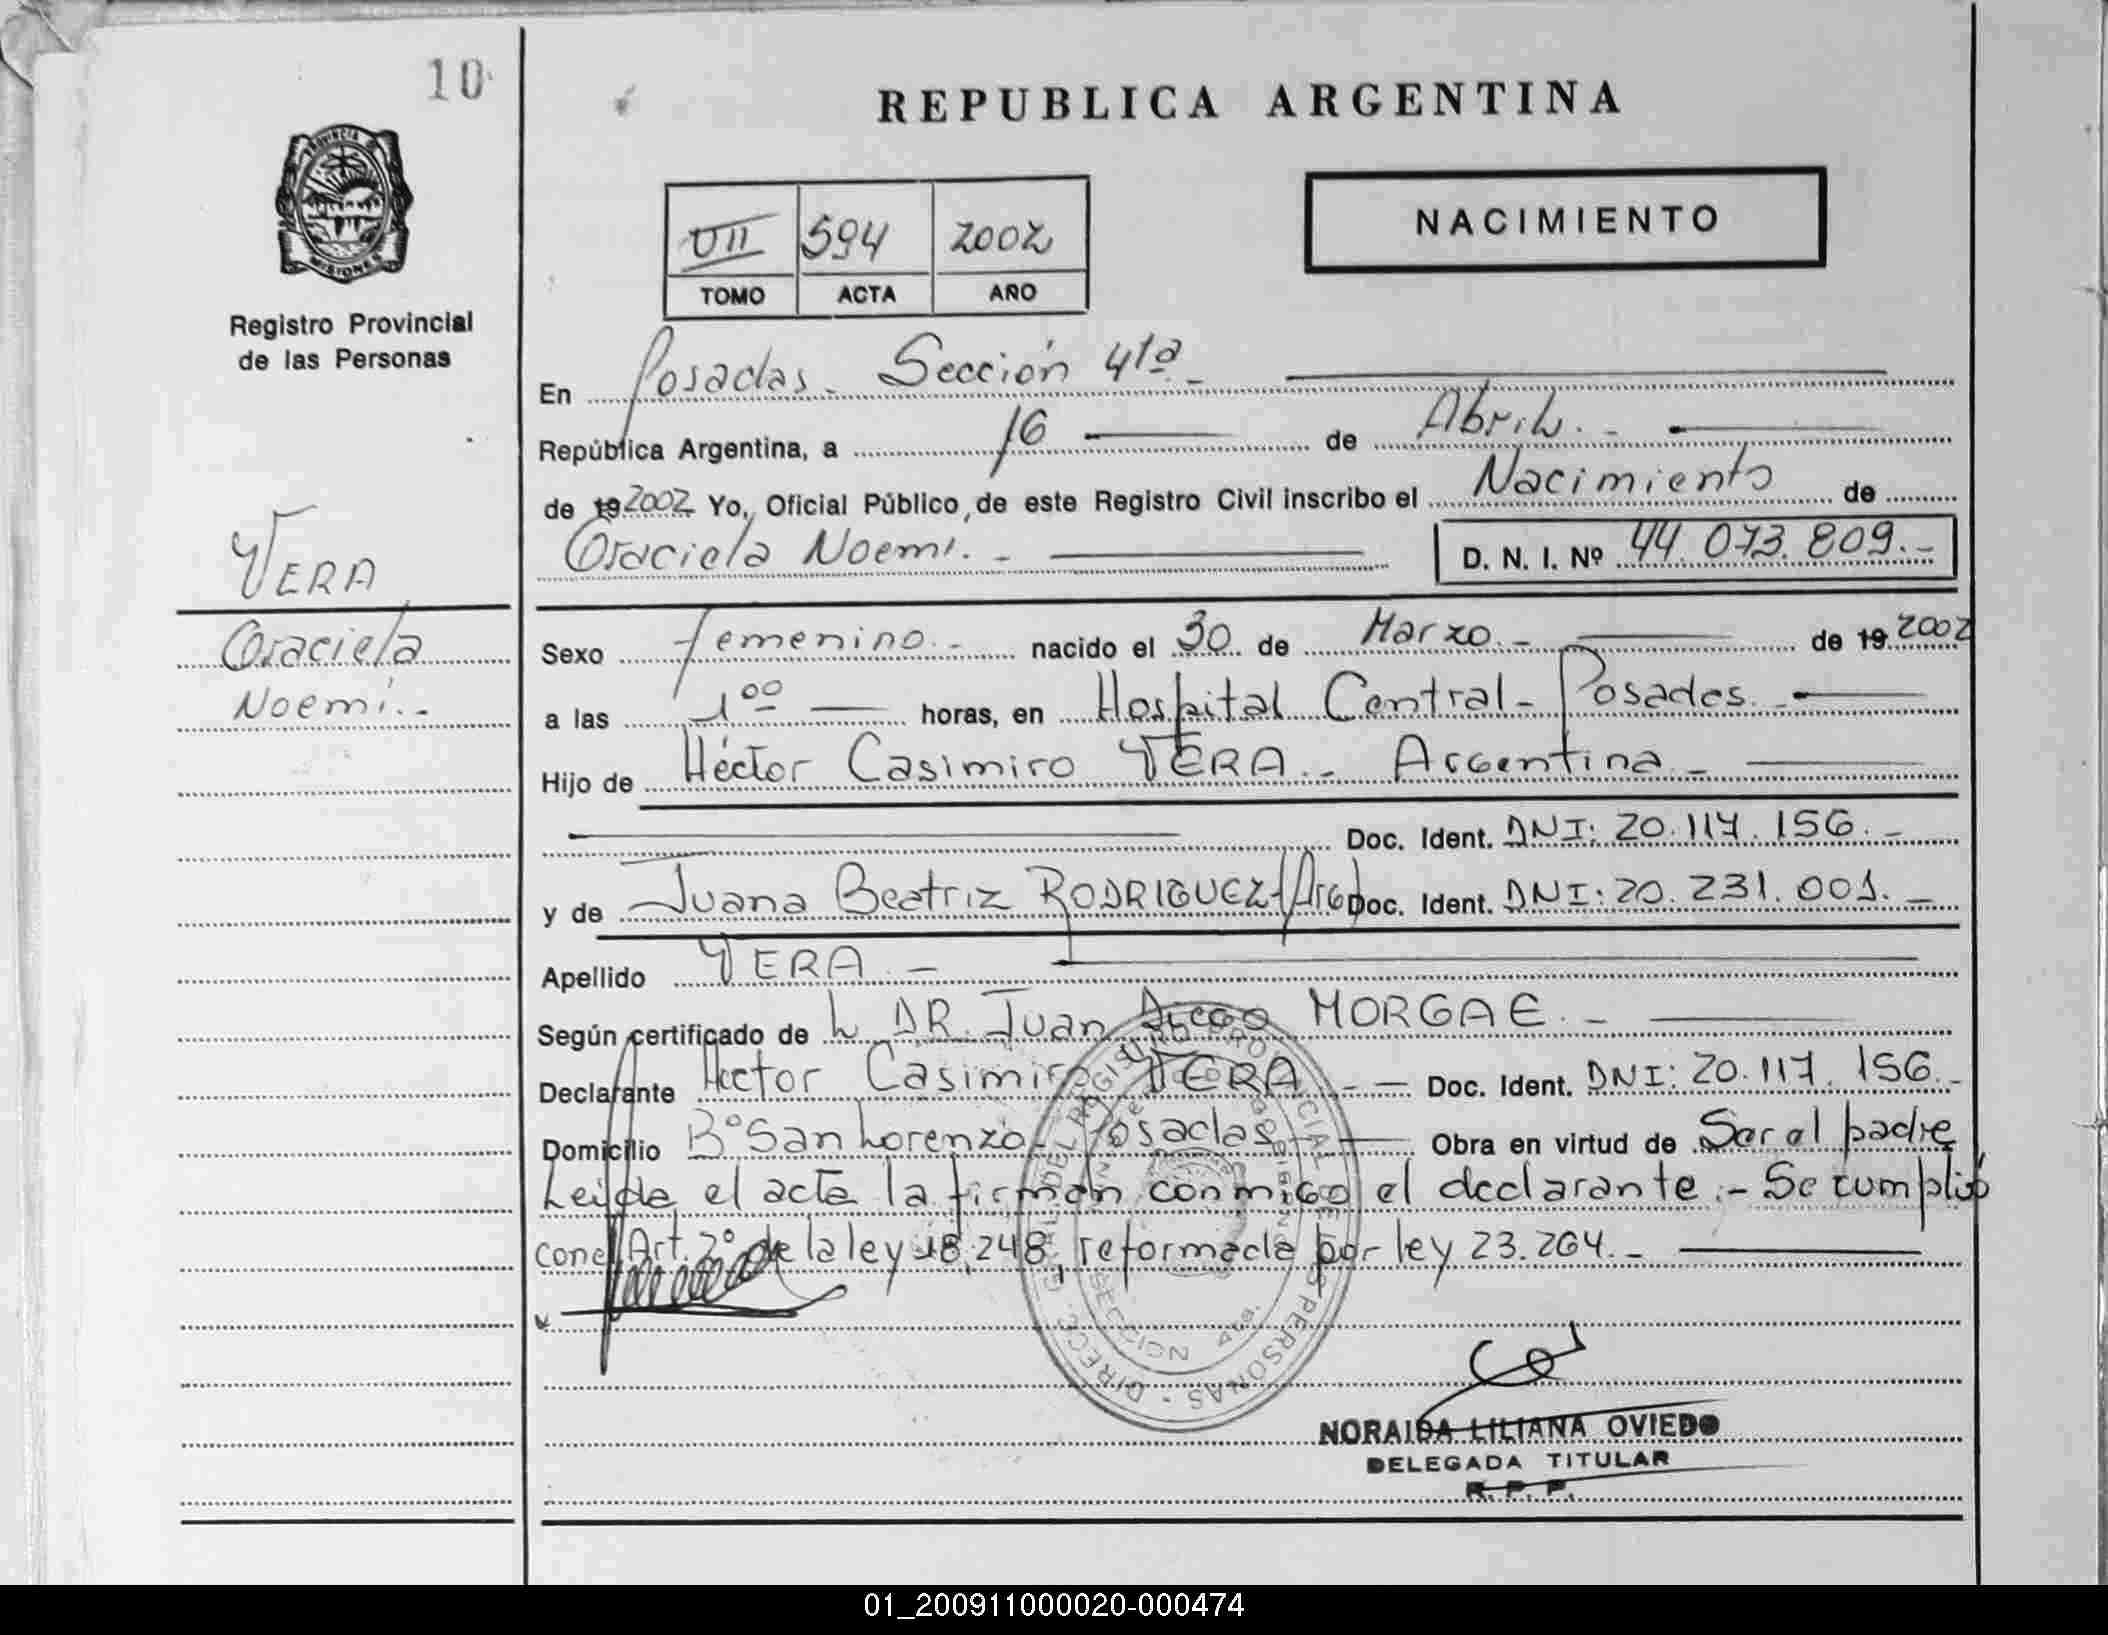 10
REPUBLICA ARGENTINA
PROVINCIA DE
MISIONES
Registro Provincial
de las Personas
VII 594 2002
TOMO ACTA AÑO
NACIMIENTO
En Posadas - Sección 4ta -
República Argentina, a 16 de Abril. -
de 19 2002 Yo, Oficial Público, de este Registro Civil inscribo el Nacimiento de
Graciela Noemi. - D. N. I. Nº 44.073.809.-
VERA
Graciela
Noemi.-
Sexo femenino.- nacido el 30 de Marzo.- de 19 2002
a las 1 00 horas, en Hospital Central - Posadas. -
Hijo de Héctor Casimiro VERA.- Argentina -
Doc. Ident. DNI: 20.117.156.-
y de Juana Beatriz RODRIGUEZ-(Arg) Doc. Ident. DNI: 20.231.001.-
Apellido VERA. -
Según certificado de L DR. Juan Diego MORGAE. -
Declarante Hector Casimiro VERA - - Doc. Ident. DNI: 20.117.156.-
Domicilio Bº San Lorenzo - Posadas - Obra en virtud de Ser el padre
Leida el acta la firman conmigo el declarante.- Se cumplió
con el Art. 2º de la ley 18.248, reformada por ley 23.264.-
DIRECC. GRAL. DEL REGISTRO PROVINCIAL DE LAS PERSONAS -
SECCION 4ta.
NORAIDA LILIANA OVIEDO
DELEGADA TITULAR
R. P. P.
01_200911000020-000474